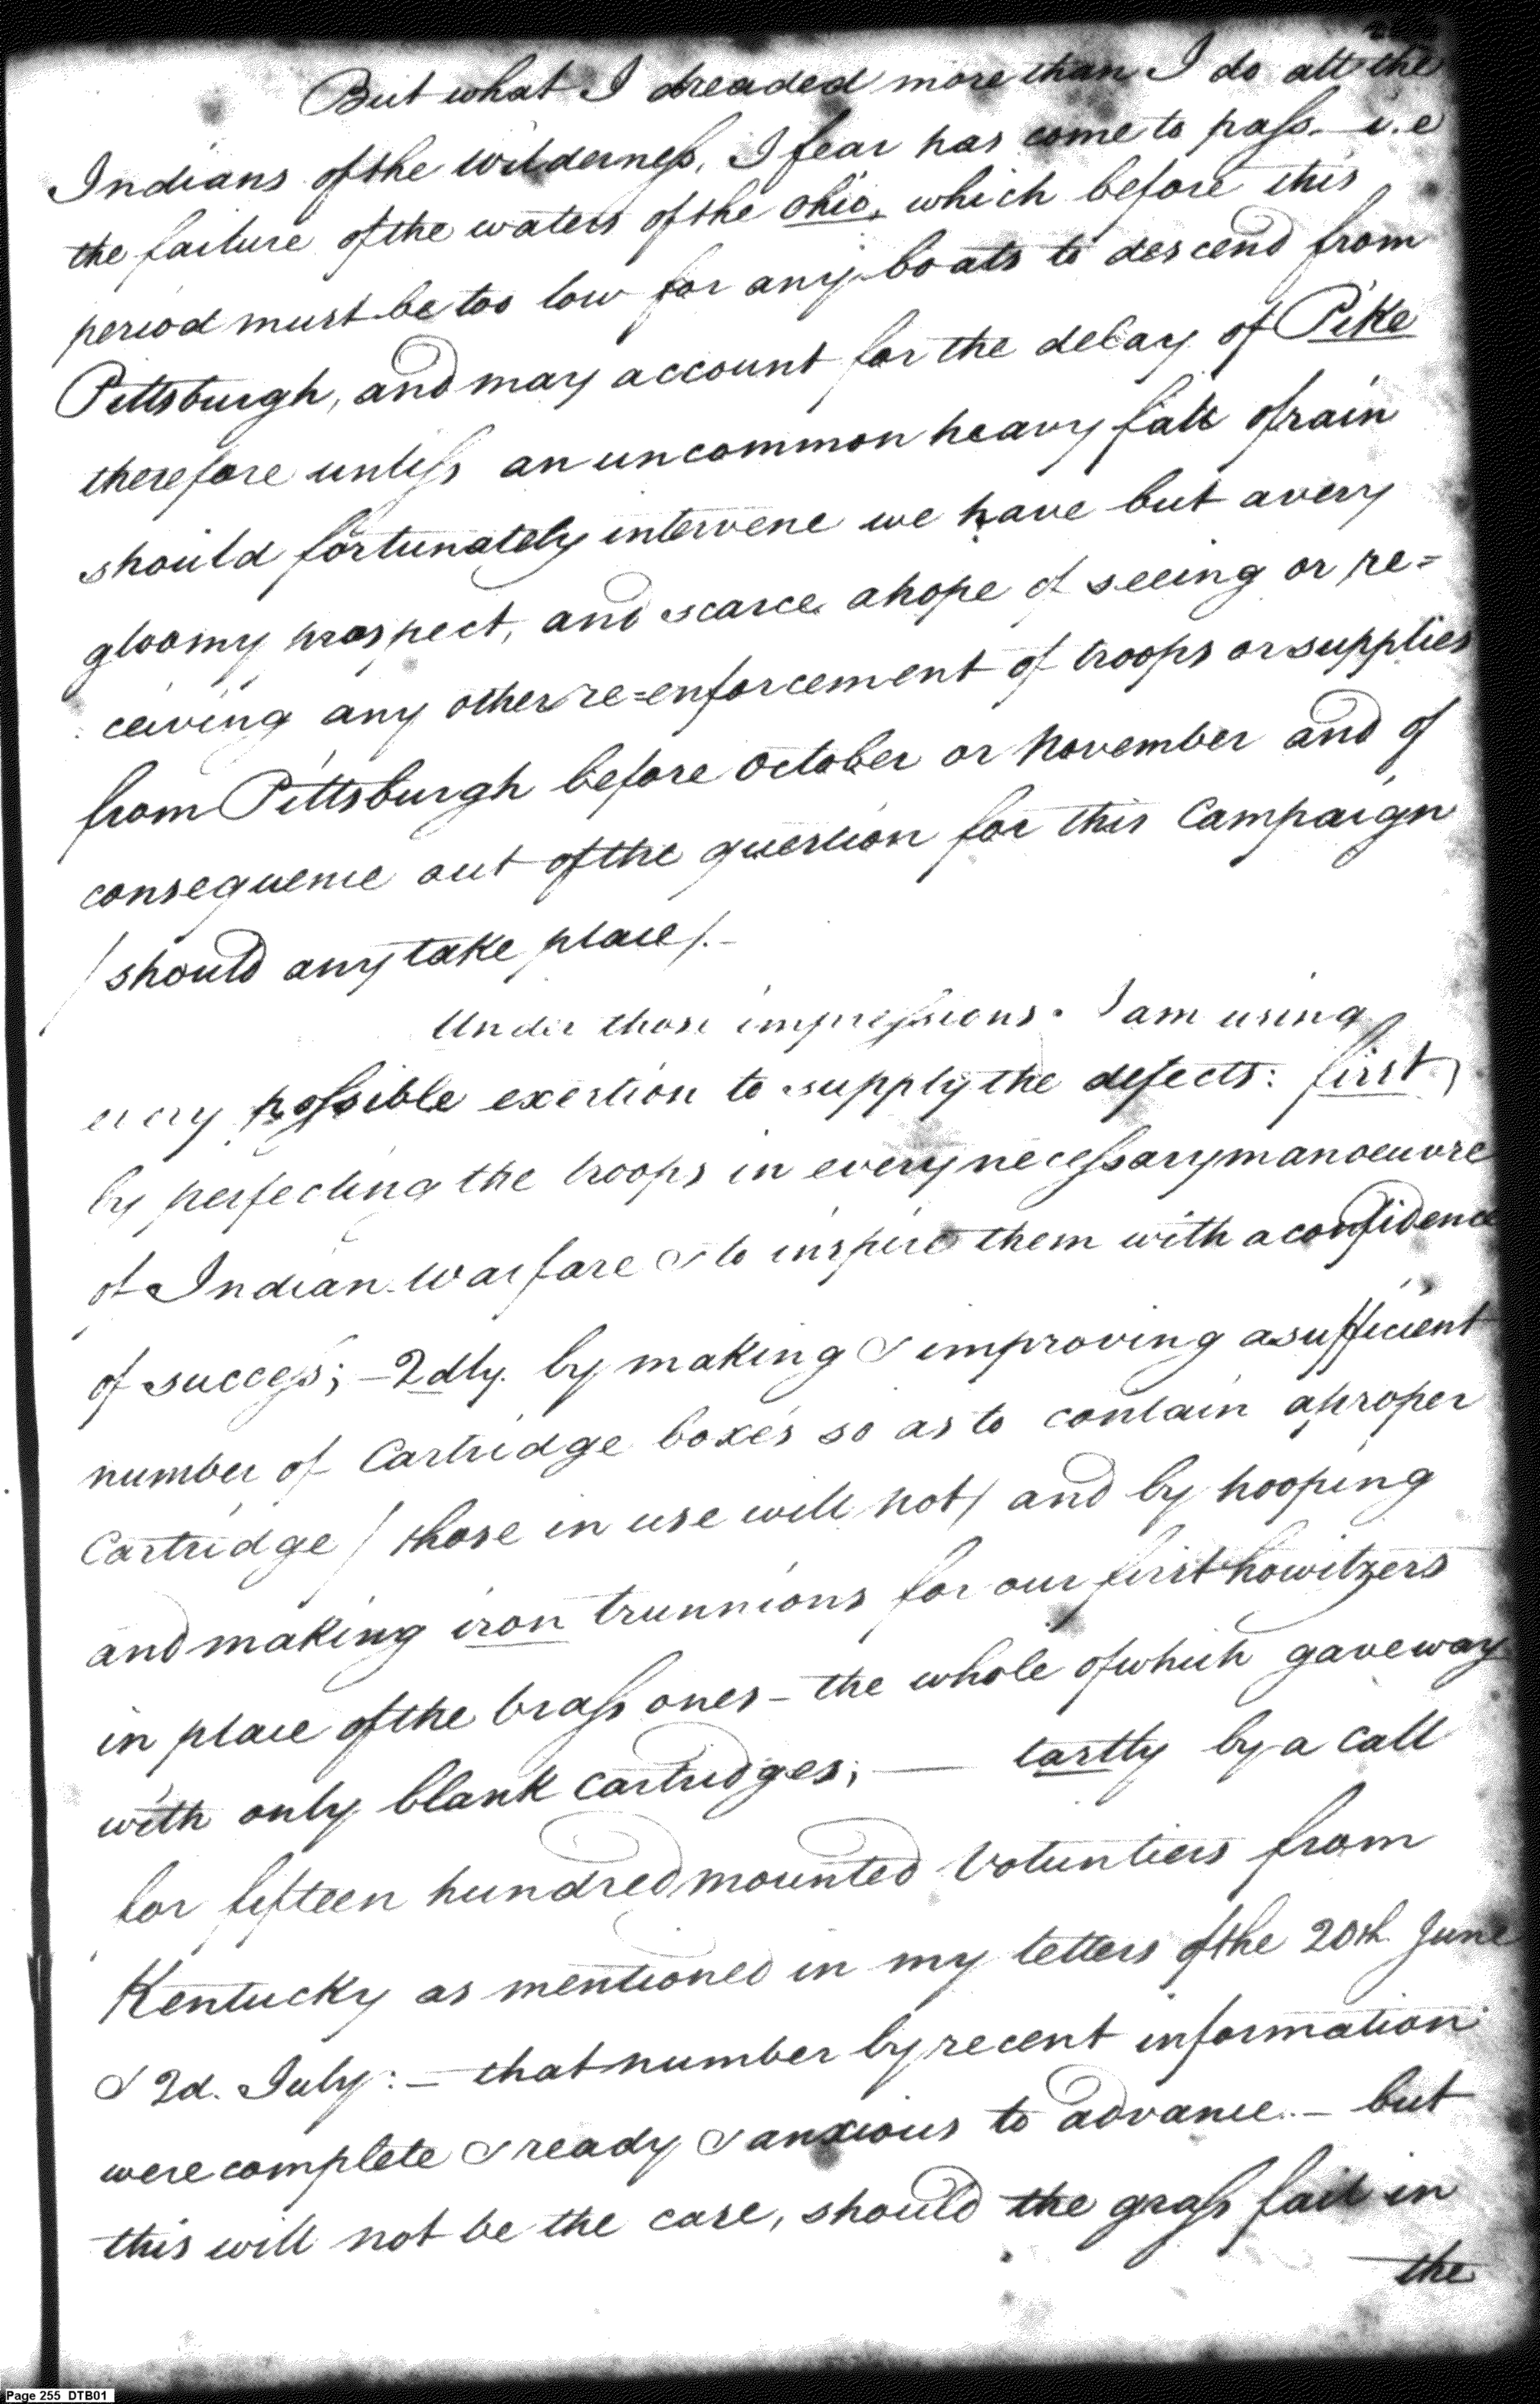 But what I dreaded more than I do all the
Indians of the wilderness, I fear has come to pass. i.e
the failure of the waters of the ohio, which before this
period must be too low for any boats to descend from
Pittsburgh, and may account for the delay of Pike
therefore unless an uncommon heavy fall of rain
should fortunately intervene we have but a very
gloomy prospect, and scarce a hope of seeing or re=
ceiving any other re=enforcement of troops or supplies
from Pittsburgh before October or November and of
consequence out of the question for this Campaign
/should any take place/.-
Under those impressions. I am using
every possible exertion to supply the defects: first,
by perfecting the troops in every necessary manoeuvre
of Indian warfare & to inspire them with a confidence
of success; - 2dly. by making & improving a sufficient
number of Cartridge boxes so as to contain a proper
Cartridge / those in use will not/ and by hooping
and making iron trunnions for our first howitzers
in place of the brass ones - the whole of which gave way
with only blank cartridges; — lastly by a call
for fifteen hundred mounted Voluntiers from
Kentucky as mentioned in my letters of the 20th. June
& 2d. July: - that number by recent information
were complete & ready & anxious to advance. - but
this will not be the case, should the grass fail in
the
Page 255 DTB01